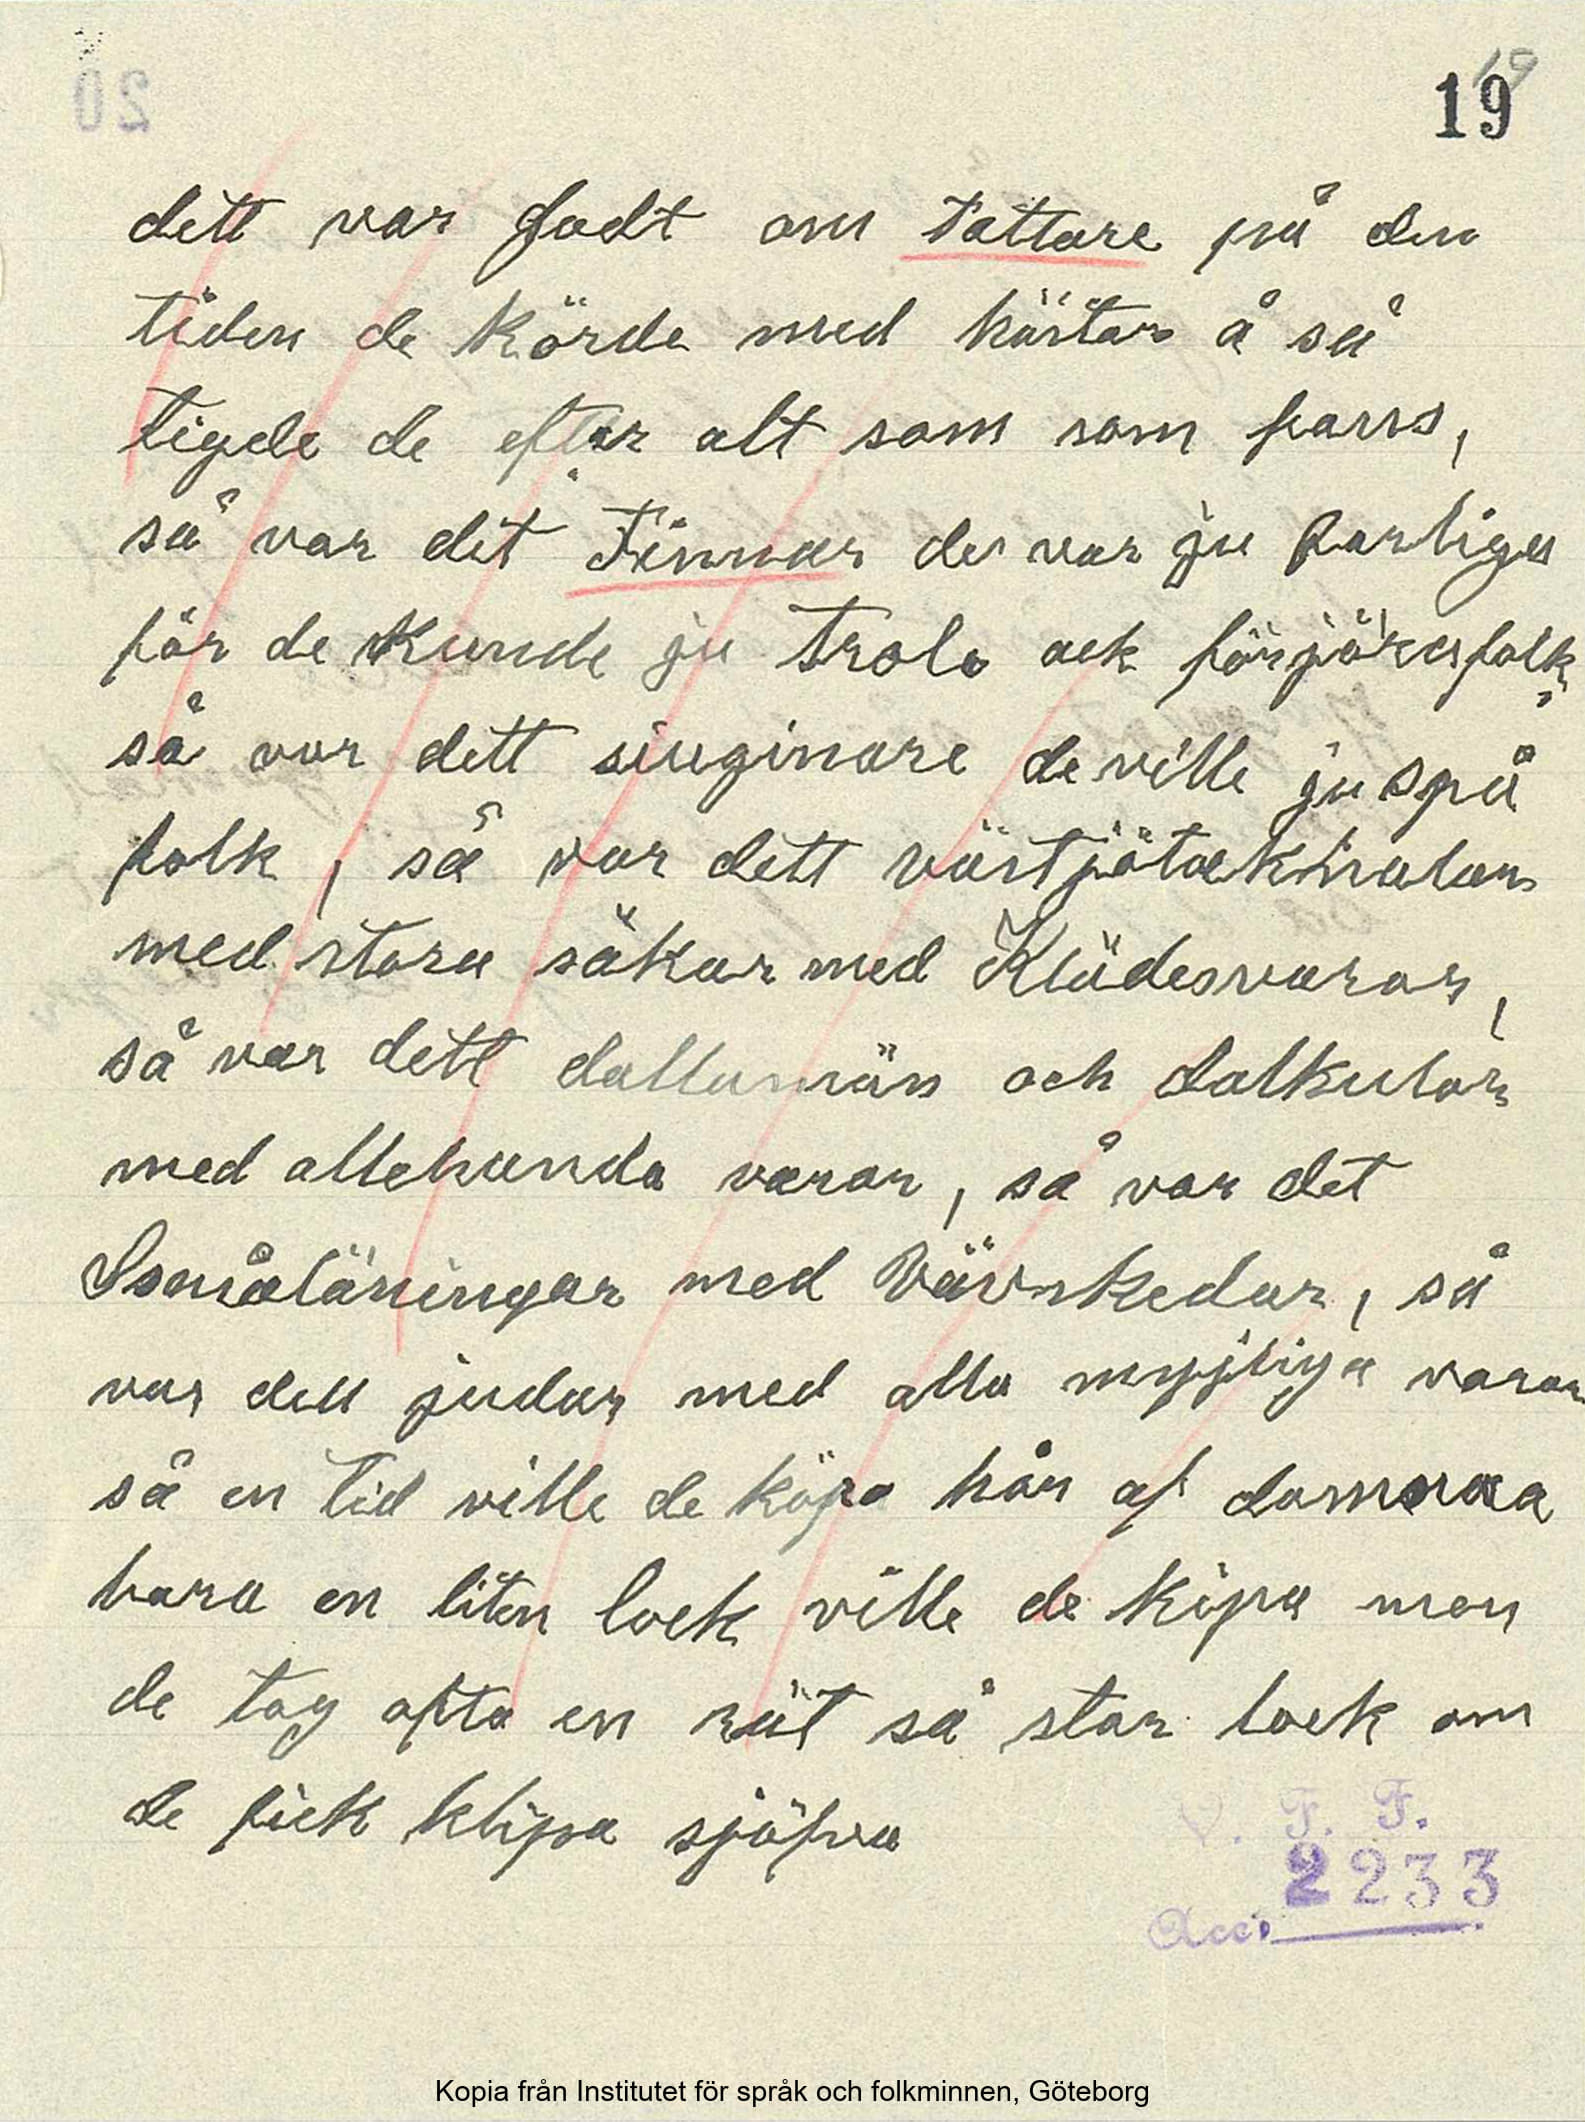 19
19
dett var godt om tattare på den
tiden de körde med hästar å så
tigde de efter alt som som fans,
så var det Finnar de var ju farliga
för de kunde ju trola ock förjöra folk,
så var dett siuginare de ville ju spå
folk, så var dett västjötaknalar
med stora säkar med Klädesvaror,
så var dett dallamän och dalkulor
med allehanda varor, så var det
Småläningar med Vävskedar, så
var dett judar med alla myjliga varor
så en tid ville de köpa hår af damerna
bara en liten lock ville de köpa men
de tog ofta en rät så stor lock om
de fick klipa sjöfva
V. F. F.
2233
Acc.
Kopia från Institutet för språk och folkminnen, Göteborg